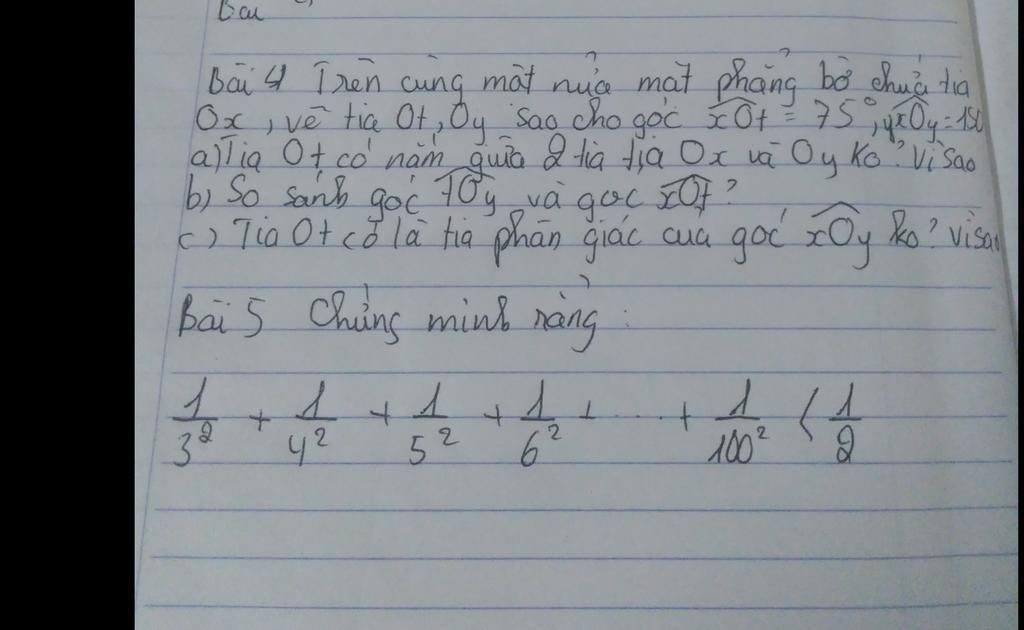 Bài 4 Trên cùng một nửa mặt phẳng bờ chứa tia
Ox, vẽ tia Ot, Oy sao cho góc xOt = 75°, xOy = 150
a) Tia Ot có nằm giữa 2 tia tia Ox và Oy ko? Vì sao
b) So sánh góc tOy và góc xOt?
c) Tia Ot có là tia phân giác của góc xOy ko? vì sao
Bài 5 Chứng minh rằng :
1/3² + 1/4² + 1/5² + 1/6² + ..... + 1/100² < 1/2